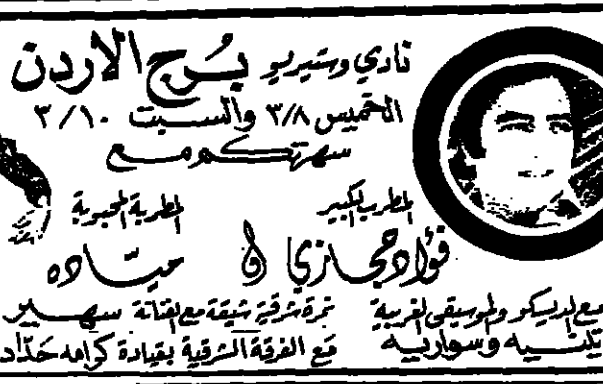 نادي وستيريو برج الاردن
الخميس ٣/٨ والسبت ٣/١٠
سهرتكم مع
المطرب الكبير
فؤاد حجازي
المطربة المحبوبة
ميّاده
مع الديسكو والموسيقى الغربية
نمرة شرقية شيقة مع الفنانة سهير
وسواريه
مع الفرقة الشرقية بقيادة كرامه حدّاد